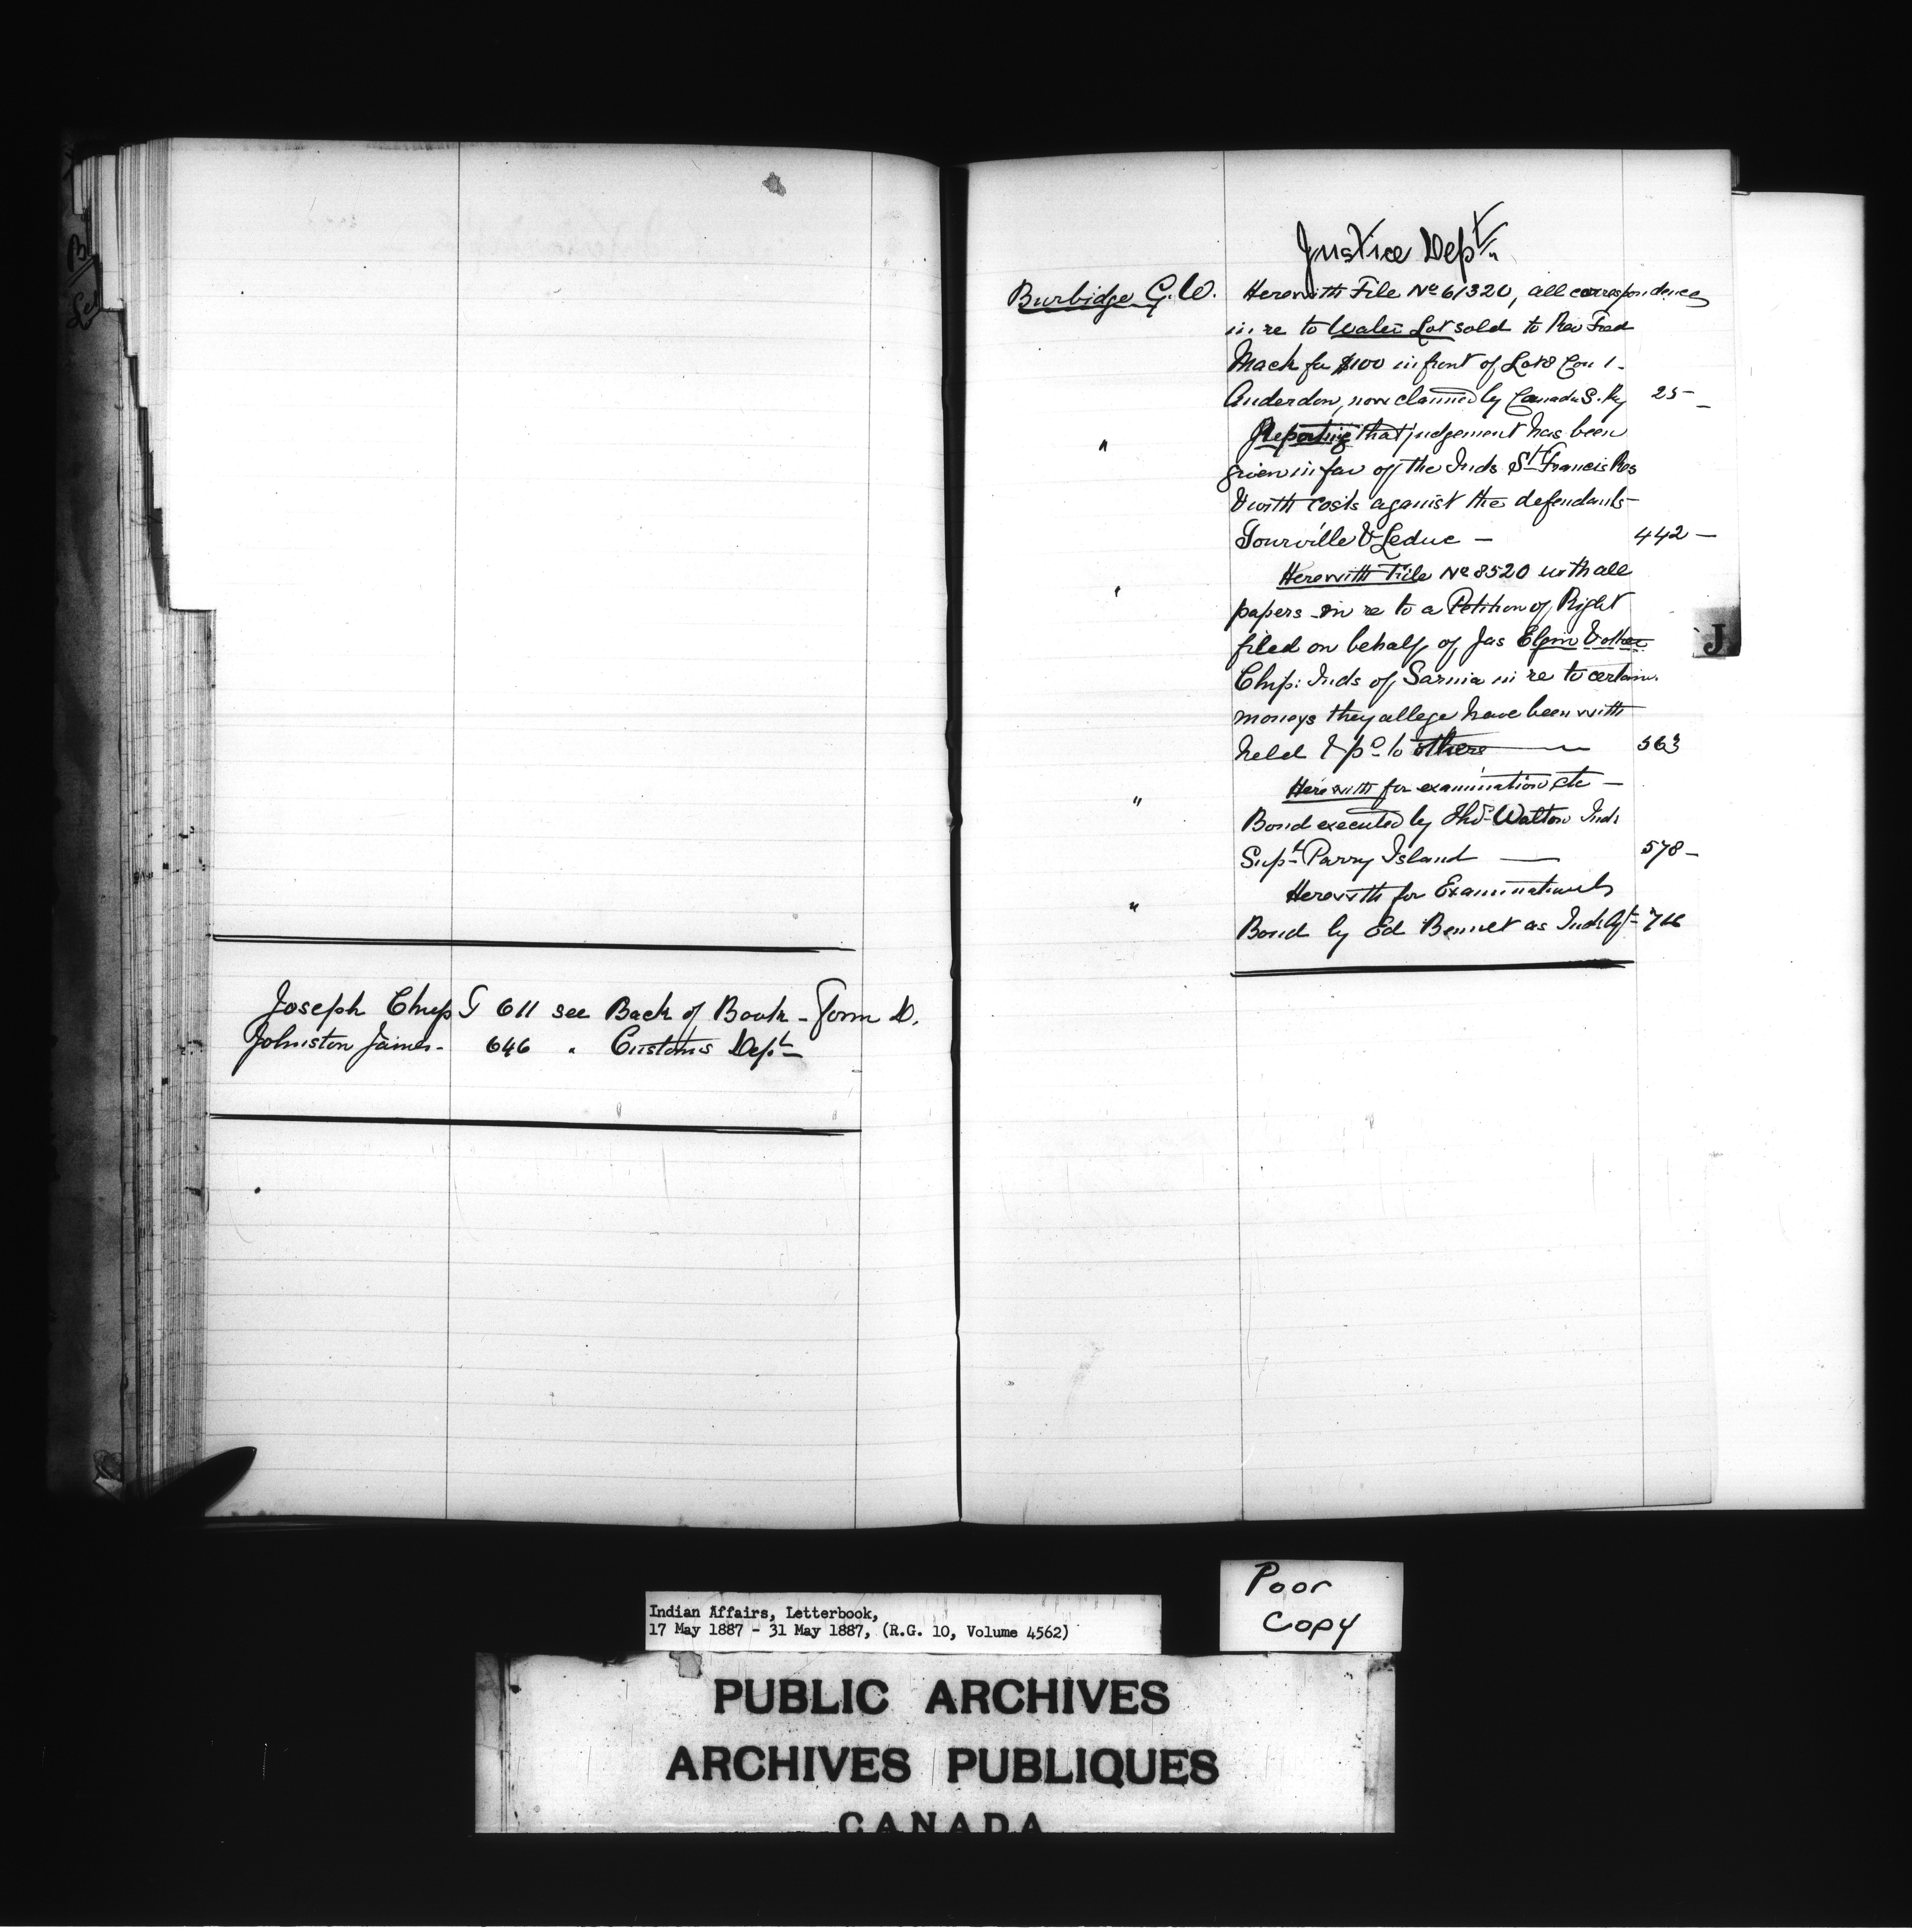 Joseph Chip G 611 see Back of Book - Form D.
Johnston James - 646 " Customs Dept
Justice Dept
Burbidge G. W. Herewith File No 61320, all correspondence
in re to Water Lot sold to Rev Fred
Mack for $100 in front of Lot 8 Con 1 -
Anderdon, now claimed by Canada S. Ry 25 -
" Reporting that judgement has been
given in fav of the Inds St Francis Res
& with costs against the defendants -
Tourville & Leduc - 442 -
" Herewith File No 8520 with all
papers in re to a Petition of Right
filed on behalf of Jas Elgin & other
Chip: Inds of Sarnia in re to certain
moneys they allege have been with
held & pd to others - 563
" Herewith for examination etc -
Bond executed by Thos Walton Ind:
Supt Parry Island - 578 -
" Herewith for Examination
Bond by Ed Bennet as Ind: Agt - 716
J
Indian Affairs, Letterbook,
17 May 1887 - 31 May 1887, (R.G. 10, Volume 4562)
Poor
Copy
PUBLIC ARCHIVES
ARCHIVES PUBLIQUES
CANADA